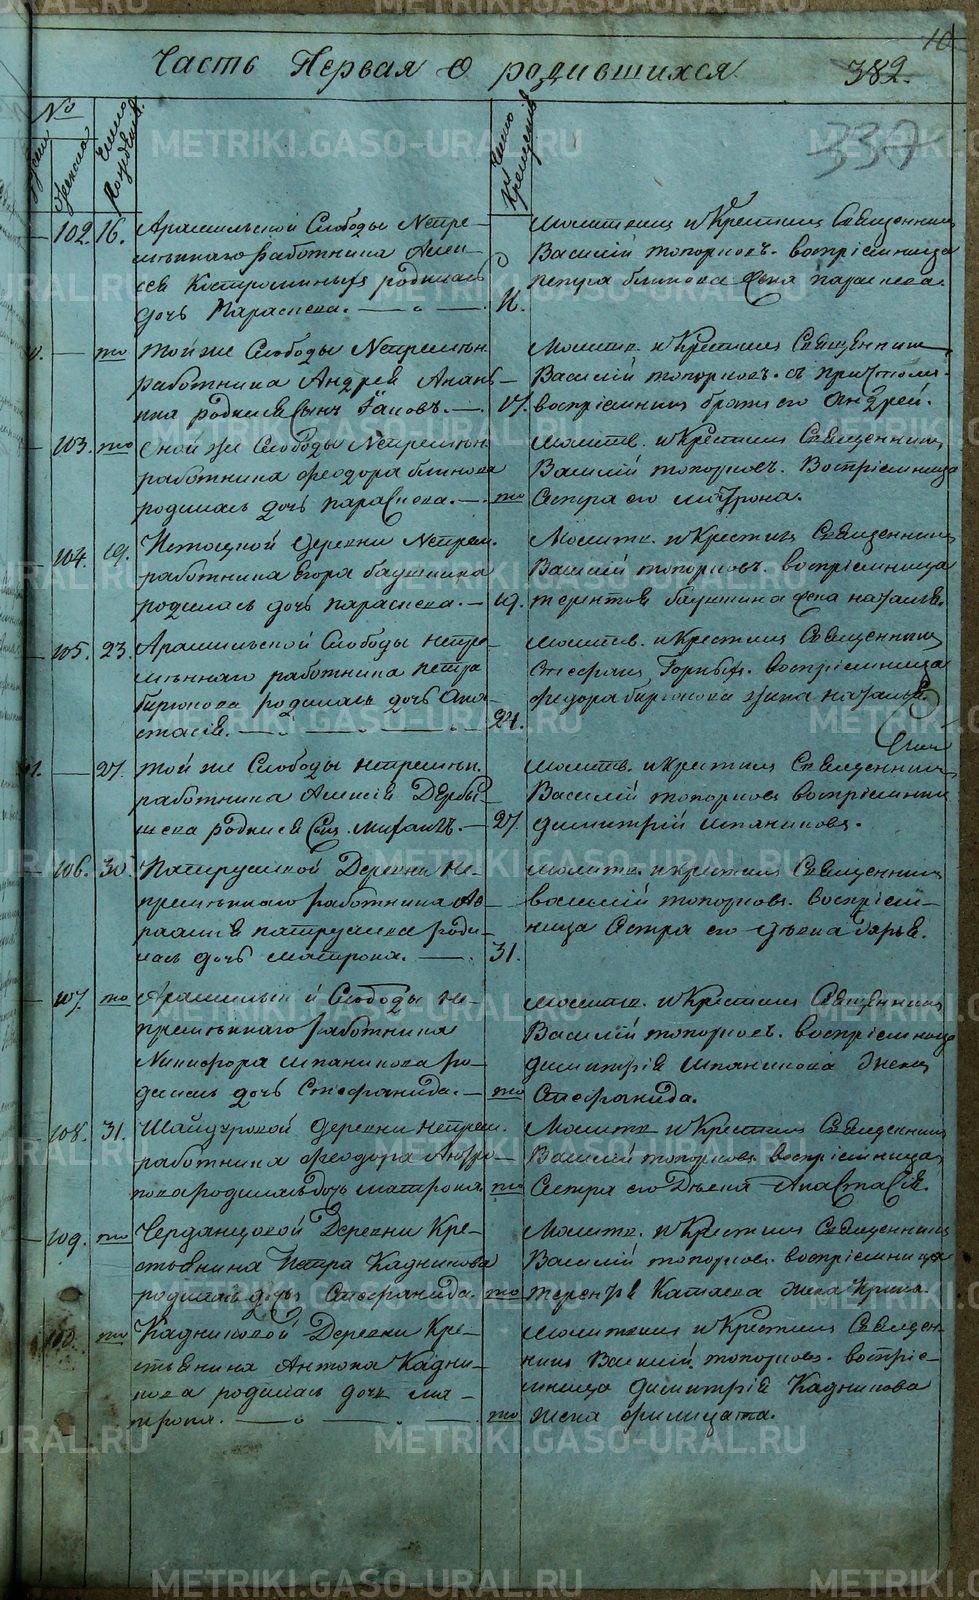 10
Часть Первая о родившихся.
382.
330
№
женска
Число Рожденiя.
Число Крещенiя
102. 16. Арамильской Слободы Непре-
мѣннаго работника Алек-
сѣя Костромина родилась
дочь Параскева. 
молитвилъ и Крестилъ Священникъ
Василiй топорковъ. воспрiемница
петра блинова жена параскева.
то той же Слободы Непремѣн.
работника Андрея Анань-
ина родился сынъ Iаковъ. 17.
Молитв. и Крестилъ Священникъ
Василiй топорковъ. съ
воспрiемникъ братъ его Андрей.
103. то оной же Слободы Непремѣн.
работника Феодора блинова
родилась дочь параскева. то
Молитв. и Крестилъ Священникъ
Василiй топорковъ. Воспрiемница
Сестра его матрона.
104. 19. деревни Непрем.
работника Егора бадшкина
родилась дочь параскева. 19.
Молитв. и Крестилъ Священникъ
Василiй топорковъ. воспрiемница
жена наталья.
105. 23. Арамильской Слободы непре-
мѣннаго работника петра
бирюкова родилась дочь Ана-
стасiя. 24.
Молитв. и Крестилъ Священникъ
Стефанъ воспрiемница
федора бирюкова жена наталья
27. той же Слободы непремѣн.
работника Алексѣя Дерды-
шева родился Сынъ Михаилъ. 27.
Молитв. и Крестилъ Священникъ
Василiй топорковъ воспрiемникъ
Димитрiй Шпаниковъ.
106. 30. Патрушкой Деревни Не-
премѣннаго работника Ав-
раамiя патрушева роди-
лась дочь матрона. 31.
молитв. и крестилъ Священникъ
василiй топорковъ. воспрiем-
ница Сестра его дѣвка дарья.
107. то Арамильской Слободы не-
премѣннаго работника
Никифора Шпаникова ро-
дилась дочь Стефанида. то
молитв. и Крестилъ Священникъ
Василiй топорковъ. воспрiемница
Димитрiя Шпаникова жена
Стефанида.
108. 31. Шайдуровой деревни непрем.
работника Феодора Андро-
нова родилась дочь матрона то
Молитв. и Крестилъ Священникъ
Василiй топорковъ воспрiемница
Сестра его Дѣвка Анастасiя.
109. то Черданцовой Деревни Кре-
стьянина Петра Кадникова
родилась дочь Стефанида. то
Молитв. и Крестилъ Священникъ
Василiй топорковъ. воспрiемница
жена
110. то Кадниковой Деревни Кре-
стьянина Антона Кадни-
кова родилась дочь ма-
трона. то
Молитвилъ и Крестилъ Священ-
никъ Василiй топорковъ. воспрiе-
мница Димитрiя Кадникова
жена филицата.
METRIKI.GASO-URAL.RU